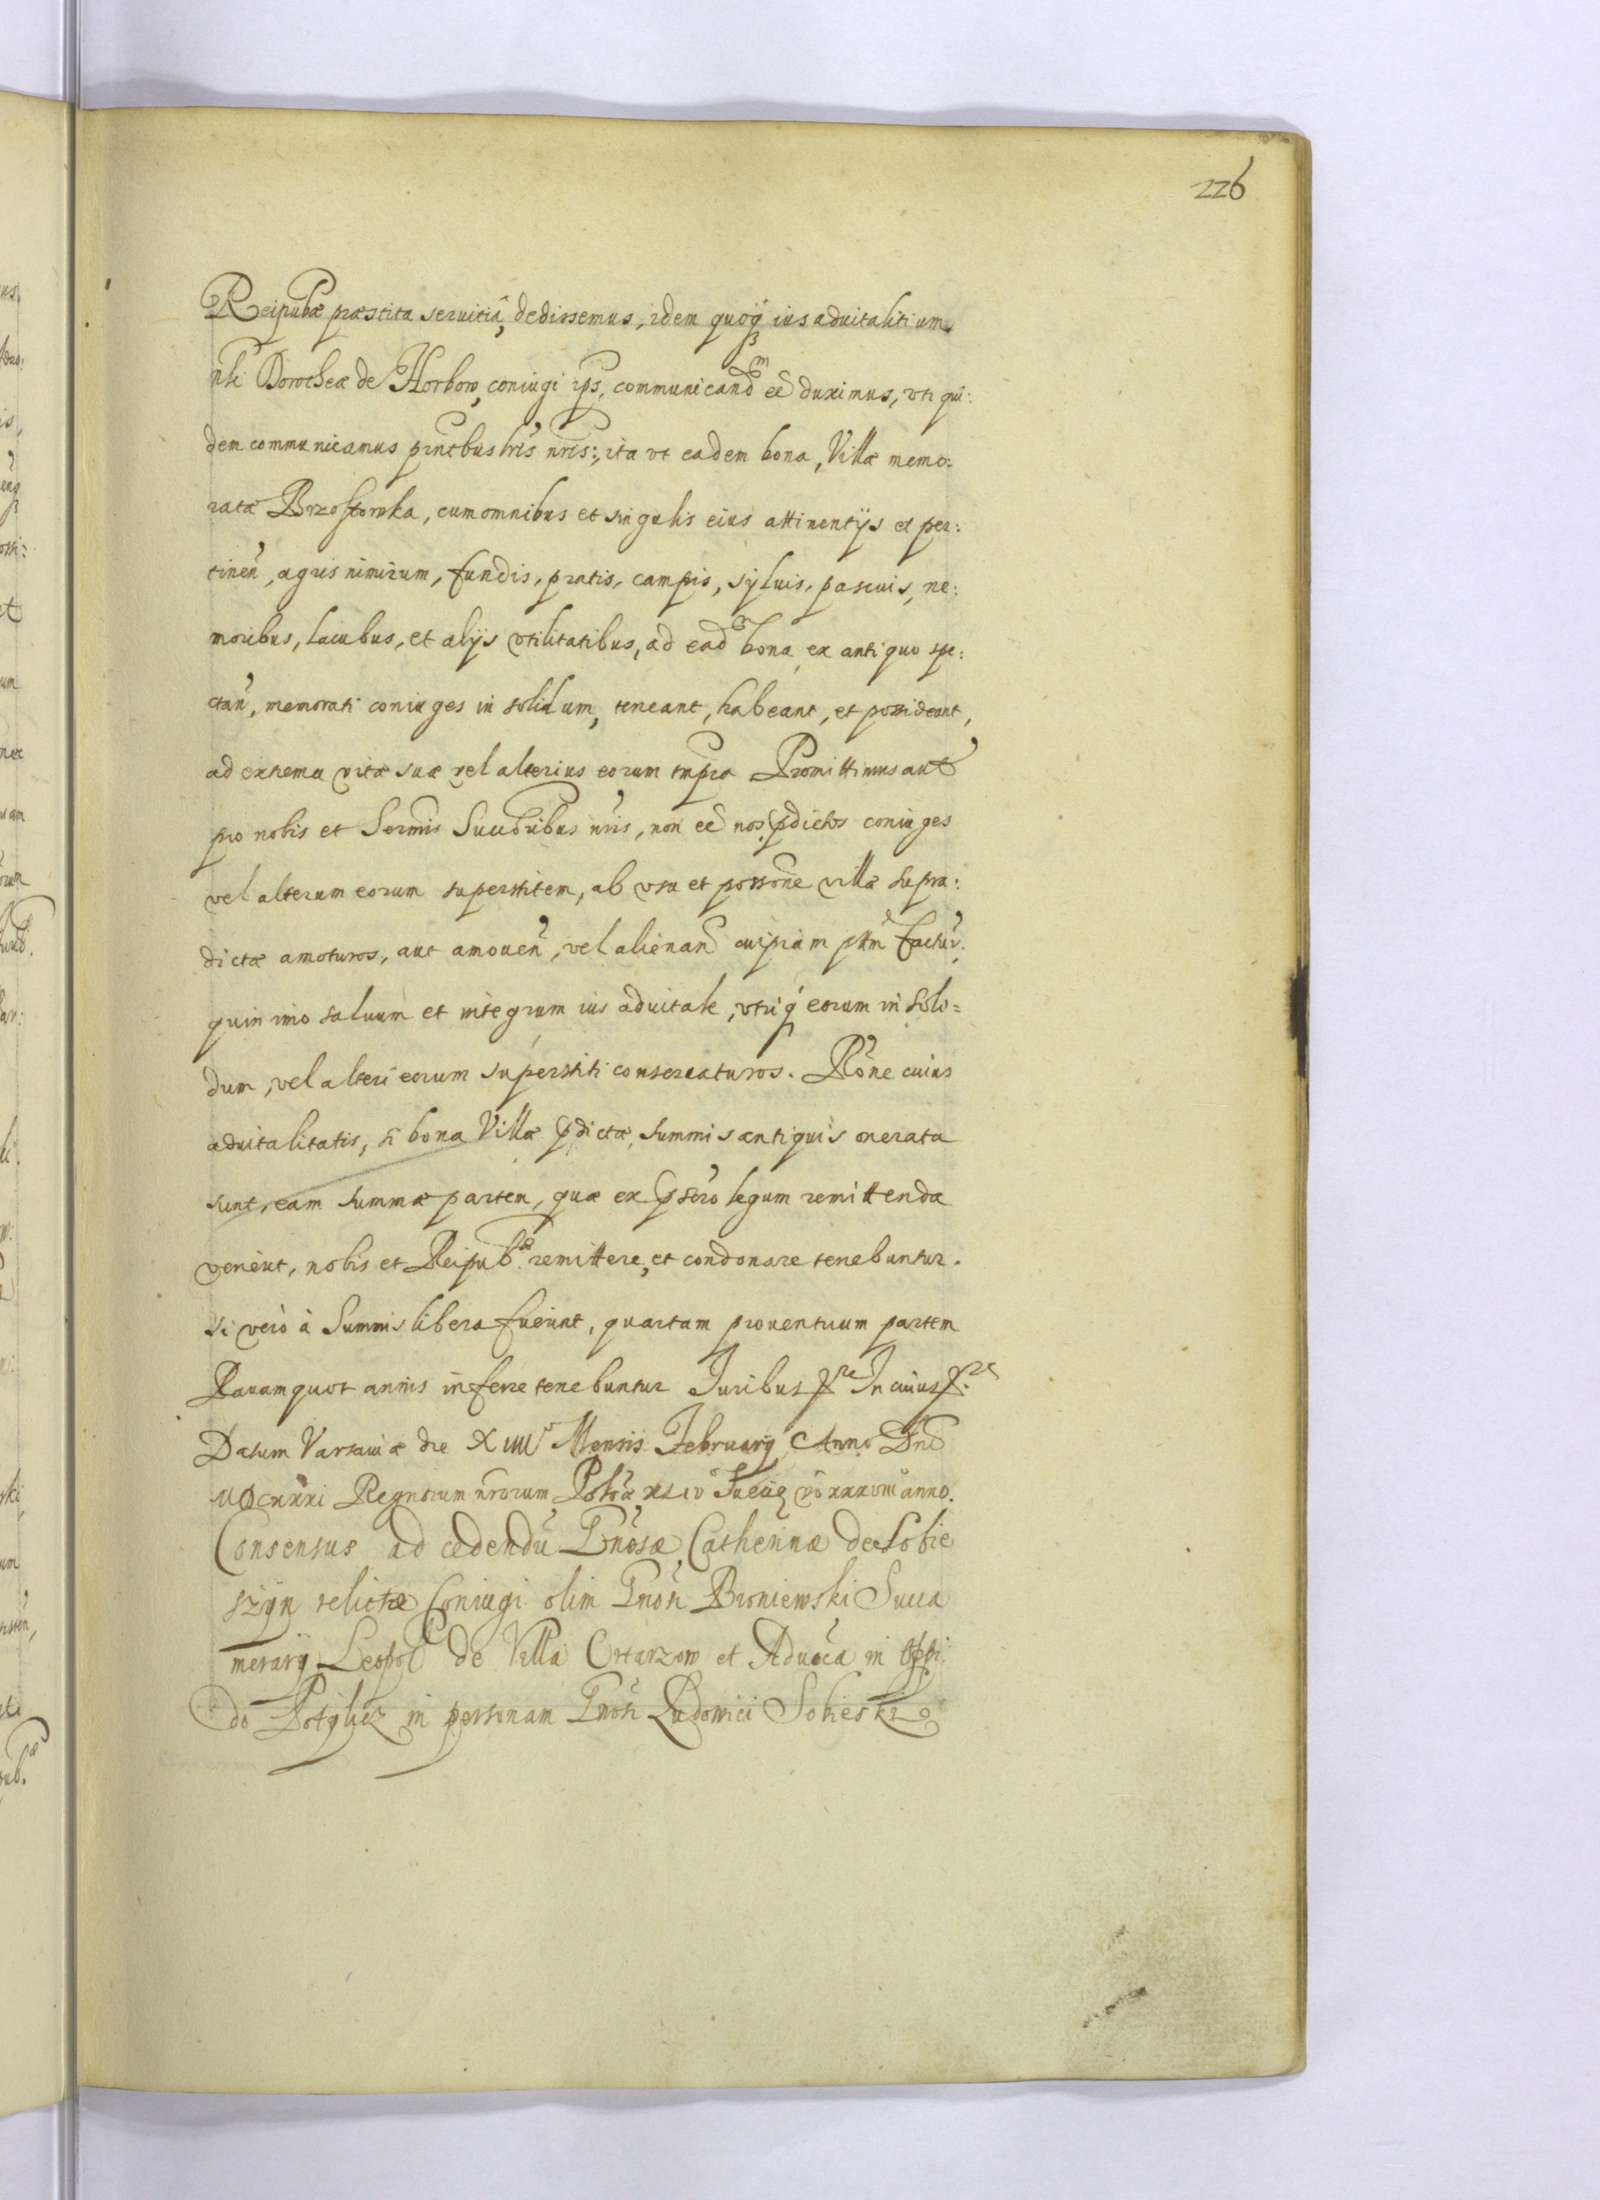 226
Reipubæ præstita seruitia, dedissemus, idem quoq̨ ius aduitalitium
nli Dorotheæ de Horbow, coniugi ips, communicand eē duximus, vti qui:
dem communicamus pn̄tbus lris nris:, ita vt eadem bona, Villæ memo:
ratæ Brzostowka, cum omnibus et singulis eius attinentijs et per:
tinen̄, agris nimirum, fundis, pratis, campis, syluis, pascuis, ne:
moribus, lacubus, et alijs vtilitatibus, ad ead bona ex antiquo spe:
ctan̄, memorati coniuges in solidum, teneant, habeant, et possideant,
ad extrema vitæ suæ vel alterius eorum tn̄pra Promittimus aut
pro nobis et Sermis Succribus nris, non eē nos pdictos coniuges
vel alterum eorum superstitem, ab vsu et possone villæ supra:
dictæ amoturos, aut amouen̄, vel alienan̄ cuipiam ptm̄ factur:
quin imo saluum et integrum ius aduitale, vtriq̨ eorum in soli=
dum, vel alteri eorum superstiti conseruaturos. Rōne cuius
aduitalitatis, si bona Villæ pdictæ, summis antiquis onerata
sunt, eam summæ partem, quæ ex pscro legum remittenda
veniet, nobis et Reipub. remittere, et condonare tenebuntur.
si vero à Summis libera fuerint, quartam prouentuum partem
Rauam quot annis inferre tenebuntur Juribus In cuius
Datum Varsauiæ die XIIII Mensis February Anno Dni
MDCXXXI Regnorum nrorum Polōæ XLIV Sueciæ vō XXXVIII anno.
Consensus ad cedendū Gnosæ Catherinæ de Sobie
szyn relictæ Coniugi olim Gnosi Broniewski Succa
merarij Leopol de Villa Ortarzow et Aduoca in oppi
do Potylicz in personam Gnosi Ludouici Sobieski